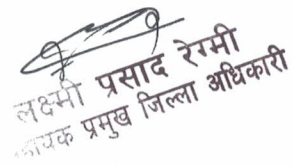 लक्ष्मी प्रसाद रेग्मी
प्रमुख जिल्ला अधिकारी